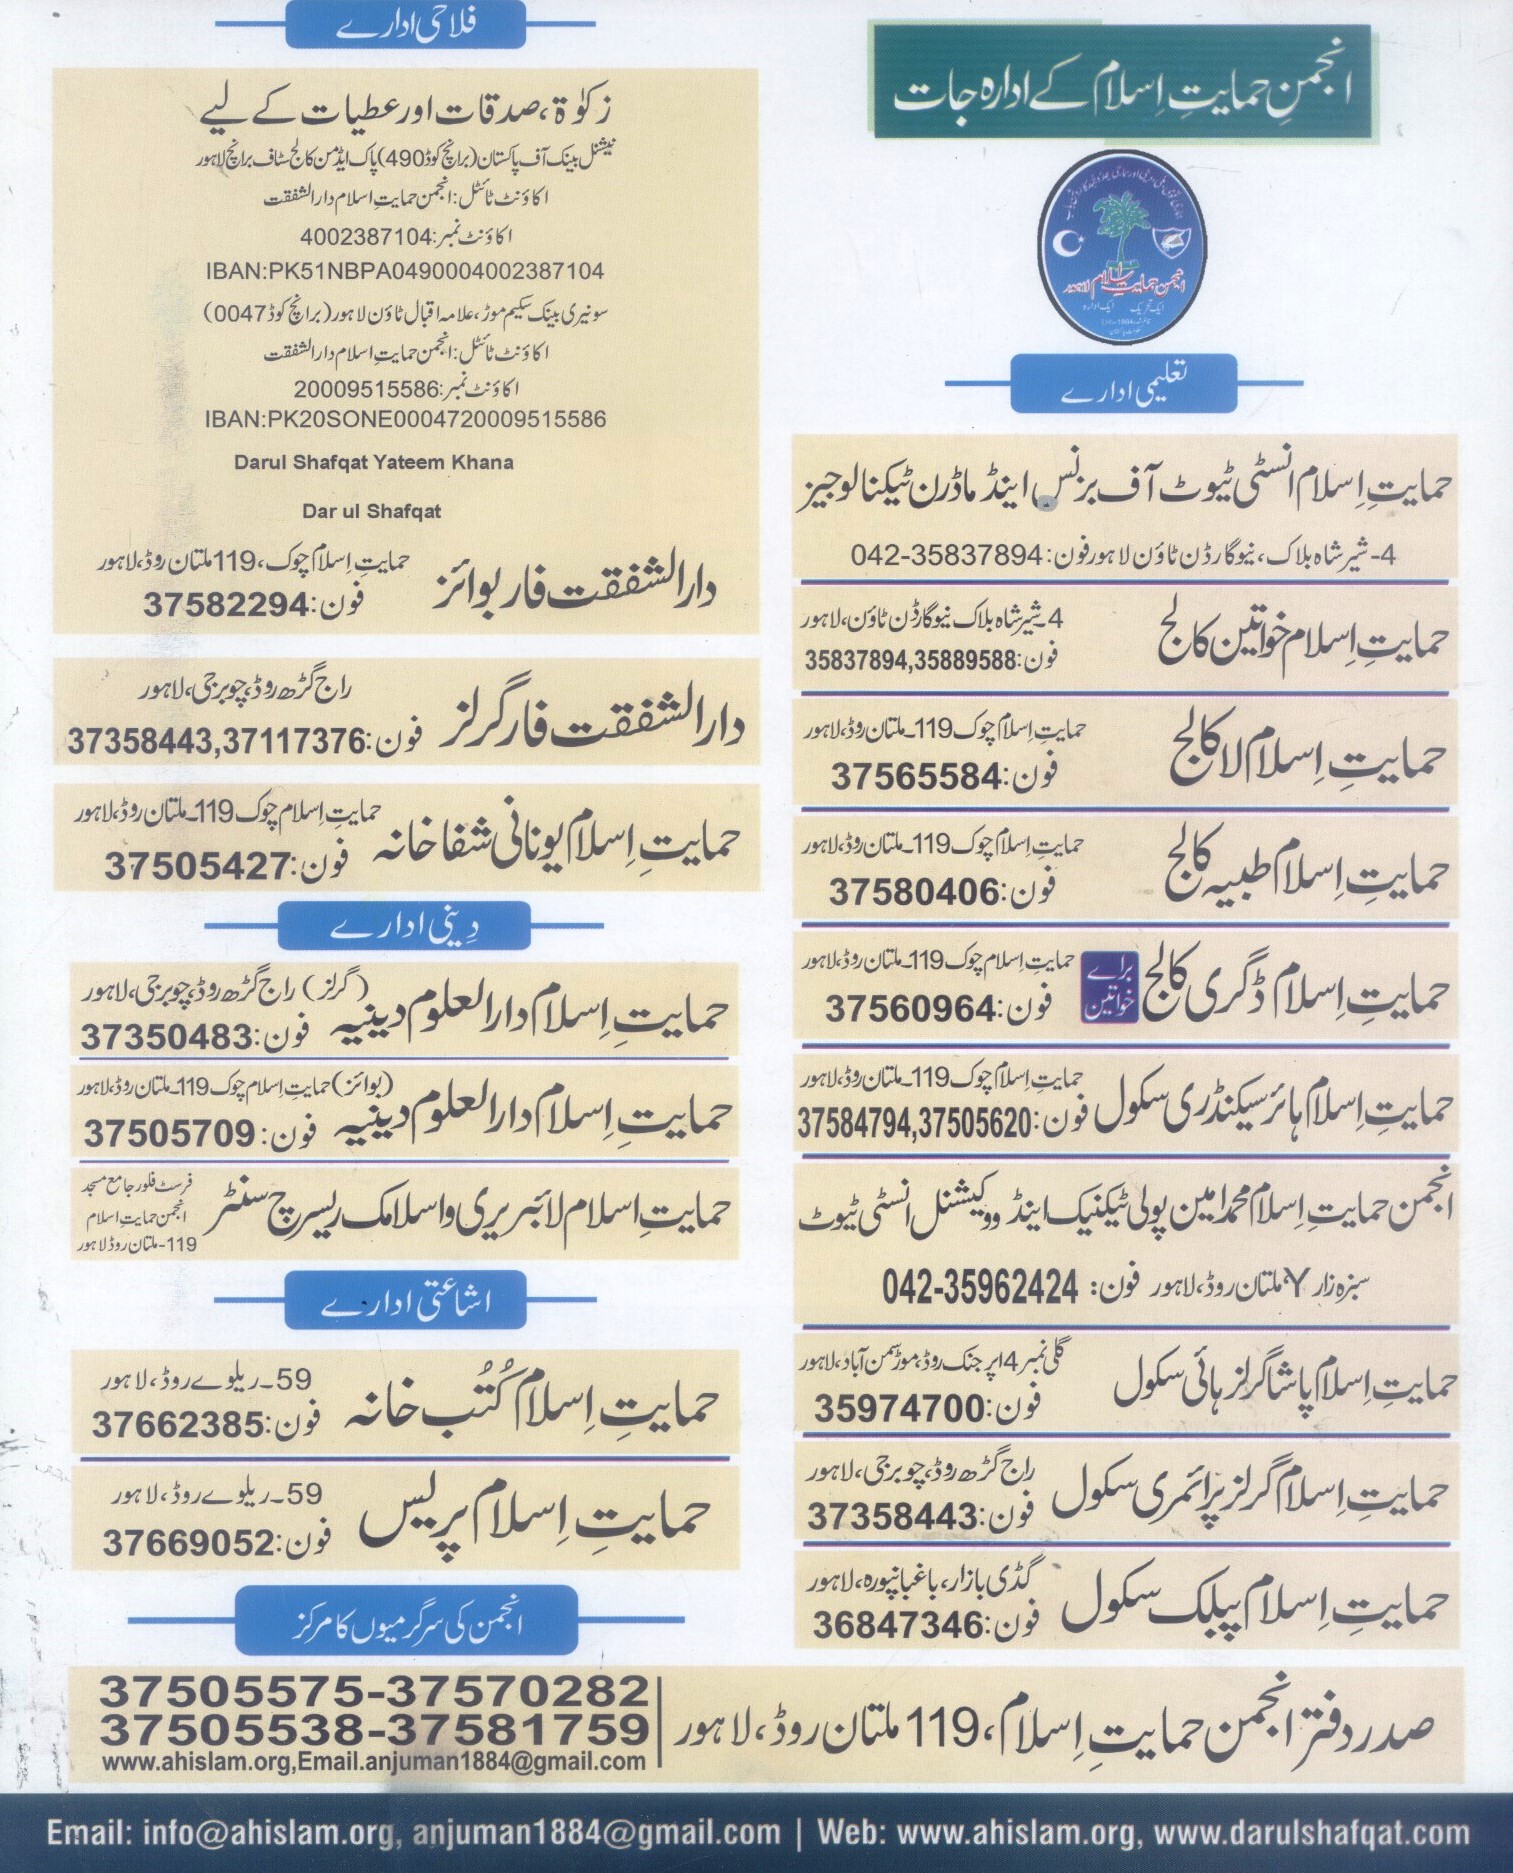 انجمنِ حمایتِ اِسلام کے ادارہ جات
انجمن حمایتِ اسلام لاہور
ایک تحریک ایک ادارہ
تعلیمی ادارے
حمایتِ اِسلام انسٹی ٹیوٹ آف بزنس اینڈ ماڈرن ٹیکنالوجیز
4-شیر شاہ بلاک، نیو گارڈن ٹاؤن لاہور فون: 042-35837894
حمایتِ اِسلام خواتین کالج
4۔شیر شاہ بلاک نیو گارڈن ٹاؤن، لاہور
فون:35837894,35889588
حمایتِ اِسلام لاکالج
حمایتِ اِسلام چوک 119۔ملتان روڈ، لاہور
فون:37565584
حمایتِ اِسلام طبیہ کالج
حمایتِ اِسلام چوک 119۔ملتان روڈ، لاہور
فون:37580406
حمایتِ اِسلام ڈگری کالج برائے خواتین
حمایتِ اِسلام چوک 119۔ملتان روڈ، لاہور
فون:37560964
حمایتِ اِسلام ہائر سیکنڈری سکول
حمایتِ اِسلام چوک 119۔ملتان روڈ، لاہور
فون:37584794,37505620
انجمن حمایتِ اِسلام محمد امین پولی ٹیکنیک اینڈ ووکیشنل انسٹی ٹیوٹ
سبزہ زار Y، ملتان روڈ، لاہور فون: 042-35962424
حمایتِ اِسلام پاشا گرلز ہائی سکول
گلی نمبر 4 اپر جنک روڈ، موڑ سمن آباد، لاہور
فون:35974700
حمایتِ اِسلام گرلز پرائمری سکول
راج گڑھ روڈ، چوبرجی، لاہور
فون:37358443
حمایتِ اِسلام پبلک سکول
گڈی بازار، باغبانپورہ، لاہور
فون:36847346
فلاحی ادارے
زکوٰۃ، صدقات اور عطیات کے لیے
نیشنل بینک آف پاکستان (برانچ کوڈ 490) پاک ایڈمن کالج سٹاف برانچ لاہور
اکاؤنٹ ٹائٹل: انجمن حمایتِ اسلام دارالشفقت
اکاؤنٹ نمبر:4002387104
IBAN:PK51NBPA0490004002387104
سونیری بینک سکیم موڑ، علامہ اقبال ٹاؤن لاہور (برانچ کوڈ 0047)
اکاؤنٹ ٹائٹل: انجمن حمایتِ اسلام دارالشفقت
اکاؤنٹ نمبر:20009515586
IBAN:PK20SONE0004720009515586
Darul Shafqat Yateem Khana
Dar ul Shafqat
دارالشفقت فار بوائز
حمایتِ اِسلام چوک، 119 ملتان روڈ، لاہور
فون:37582294
دارالشفقت فار گرلز
راج گڑھ روڈ، چوبرجی، لاہور
فون:37358443,37117376
حمایتِ اِسلام یونانی شفا خانہ
حمایتِ اِسلام چوک 119۔ملتان روڈ، لاہور
فون:37505427
دِینی ادارے
حمایتِ اِسلام دارالعلوم دینیہ
(گرلز) راج گڑھ روڈ، چوبرجی، لاہور
فون:37350483
حمایتِ اِسلام دارالعلوم دینیہ
(بوائز) حمایتِ اِسلام چوک 119۔ملتان روڈ، لاہور
فون: 37505709
حمایتِ اسلام لائبریری و اسلامک ریسرچ سنٹر
فرسٹ فلور جامع مسجد
انجمن حمایتِ اسلام
119-ملتان روڈ لاہور
اشاعتی ادارے
حمایتِ اِسلام کُتُب خانہ
59۔ریلوے روڈ، لاہور
فون:37662385
حمایتِ اِسلام پریس
59۔ریلوے روڈ، لاہور
فون:37669052
انجمن کی سرگرمیوں کا مرکز
صدر دفتر انجمن حمایتِ اِسلام، 119 ملتان روڈ، لاہور
37505575-37570282
37505538-37581759
www.ahislam.org,Email.anjuman1884@gmail.com
Email: info@ahislam.org, anjuman1884@gmail.com | Web: www.ahislam.org, www.darulshafqat.com